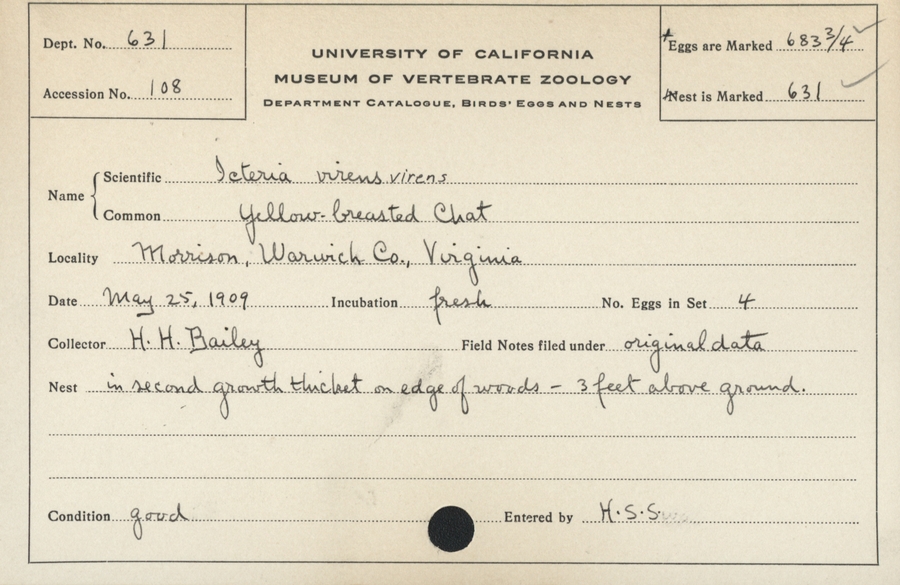 Dept. No. 631
Accession No. 108
UNIVERSITY OF CALIFORNIA
MUSEUM OF VERTEBRATE ZOOLOGY
DEPARTMENT CATALOGUE, BIRDS' EGGS AND NESTS
Eggs are Marked 683 3/4
Nest is Marked 631
Name
Scientific Icteria virens virens
Common Yellow-breasted Chat
Locality Morrison, Warwich Co., Virginia
Date May 25, 1909 Incubation fresh No. Eggs in Set 4
Collector H. H. Bailey Field Notes filed under original data
Nest in second growth thicket on edge of woods – 3 feet above ground.
Condition good Entered by H.S.S.